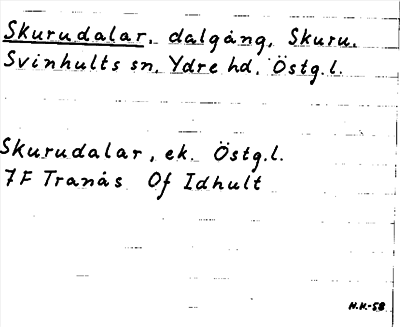 Skurudalar, dalgång, Skuru.
Svinhults sn, Ydre hd, Östg.l.
Skurudalar, ek. Östg.l.
7F Tranås Of Idhult
H.H.-58